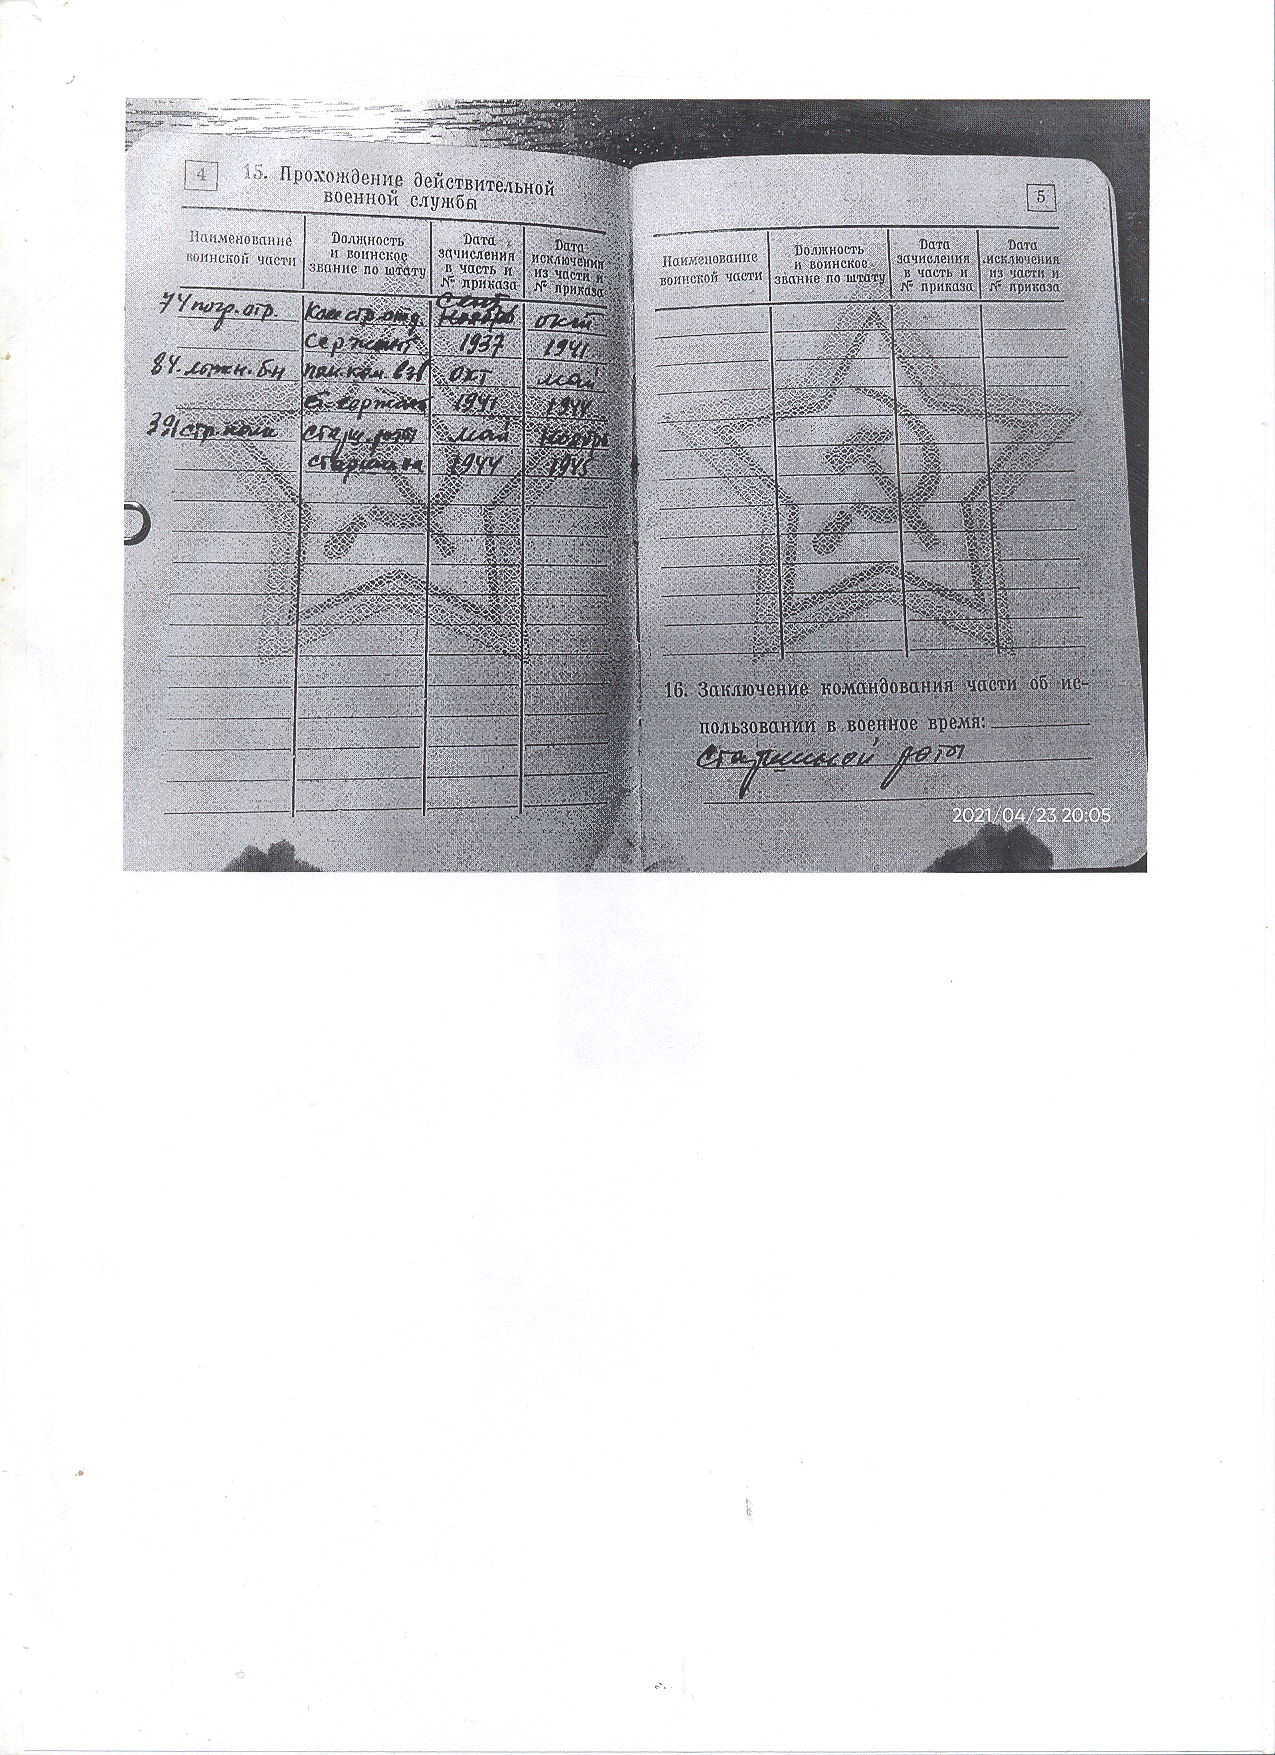 4
15. Прохождение действительной
военной службы
Наименование
воинской части
Должность
и воинское
звание по штату
Дата
зачисления
в часть и
№ приказа
Дата
исключения
из части и
№ приказа
74 погр. отр. Ком стр. отд. Сент
Сержант 1937 1941
84. бн пом. ком. взв окт май
сержант 1941 1944
стр. Старш. роты май
старшина 1944 1945
5
Наименование
воинской части
Должность
и воинское
звание по штату
Дата
зачисления
в часть и
№ приказа
Дата
исключения
из части и
№ приказа
16. Заключение командования части об ис-
пользовании в военное время:
Старшиной роты
2021/04/23 20:05